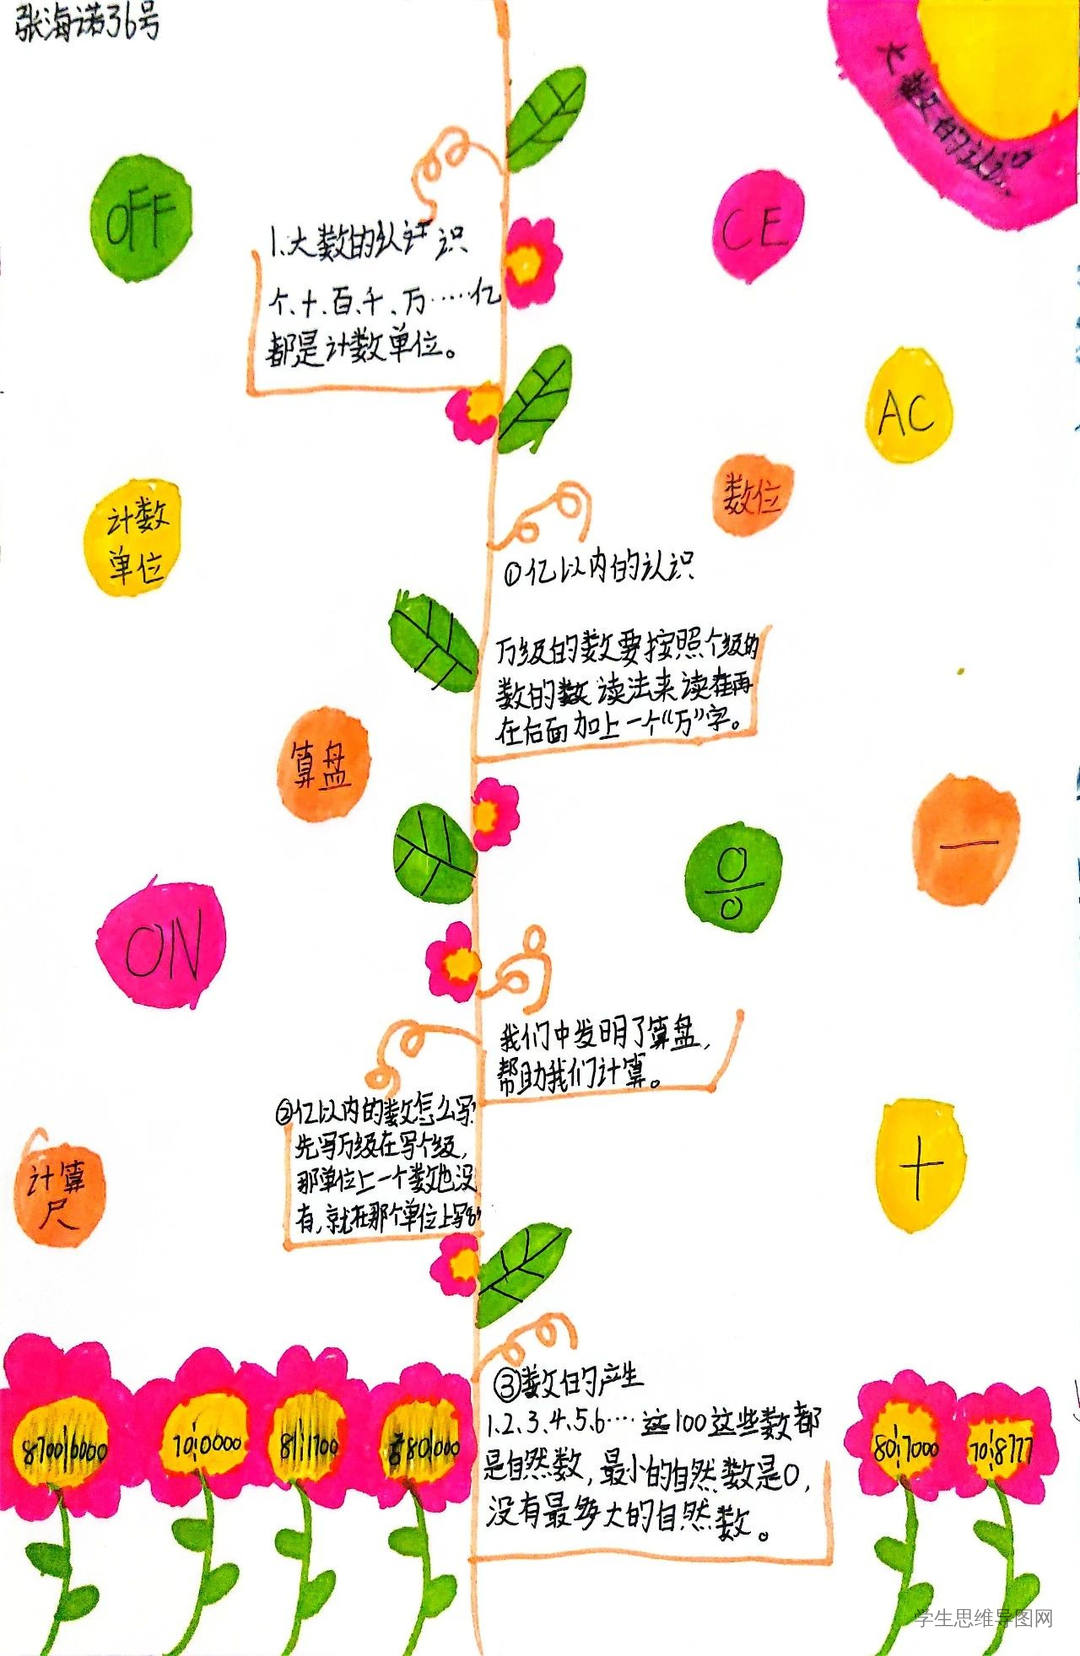 张海诺36号
大数的认识
OFF
CE
1.大数的认识
个、十、百、千、万……亿
都是计数单位。
AC
计数
单位
数位
①亿以内的认识
万级的数要按照个级的
数的数读法来读在再
在后面加上一个“万”字。
算盘
一
ON
我们中发明了算盘,
帮助我们计算。
②亿以内的数怎么写?
先写万级在写个级,
那单位上一个数也没
有,就在那个单位上写
计算
尺
+
③数的产生
1.2.3.4.5.6……这100这些数都
是自然数,最小的自然数是0,
没有最多大的自然数。
8700|6000
70|0000
81|1700
80|000
80|7000
70|8777
学生思维导图网